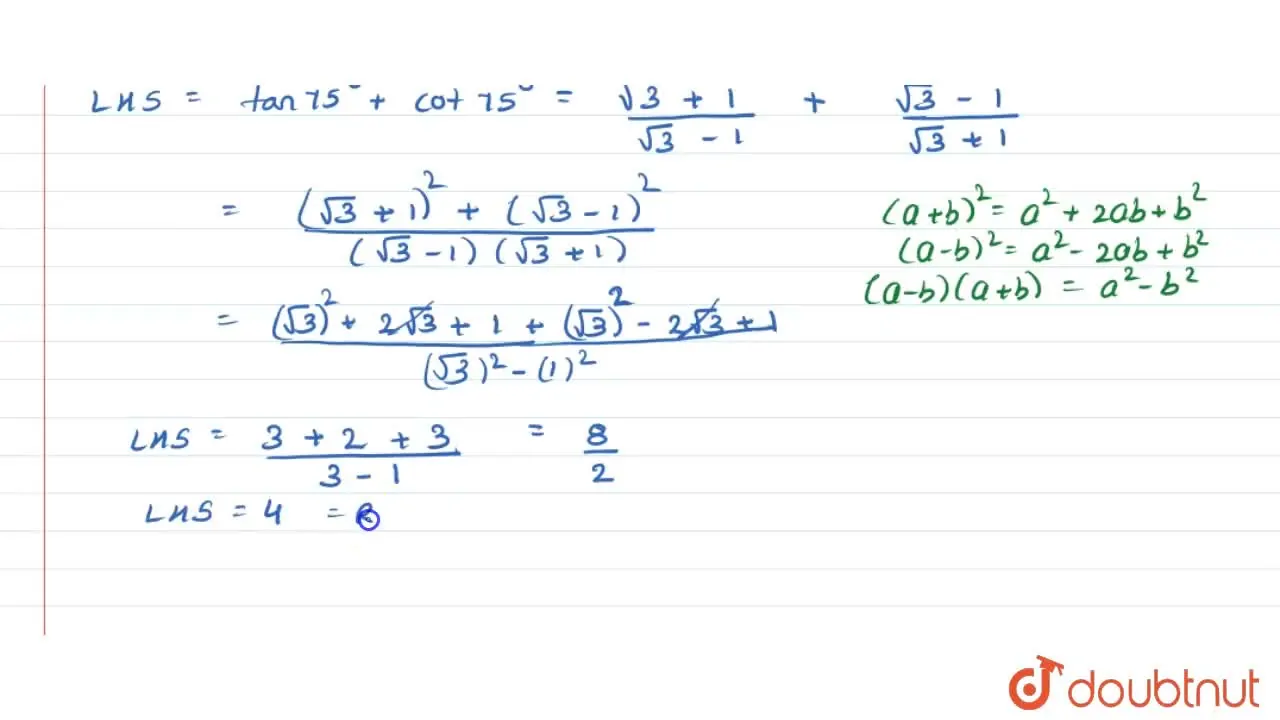 LHS = tan 75° + cot 75° = √3 + 1 / √3 - 1 + √3 - 1 / √3 + 1
= (√3 + 1)² + (√3 - 1)² / (√3 - 1) (√3 + 1)
(a+b)² = a² + 2ab + b²
(a-b)² = a² - 2ab + b²
(a-b)(a+b) = a² - b²
= (√3)² + 2√3 + 1 + (√3)² - 2√3 + 1 / (√3)² - (1)²
LHS = 3 + 2 + 3 / 3 - 1 = 8 / 2
LHS = 4 =
doubtnut